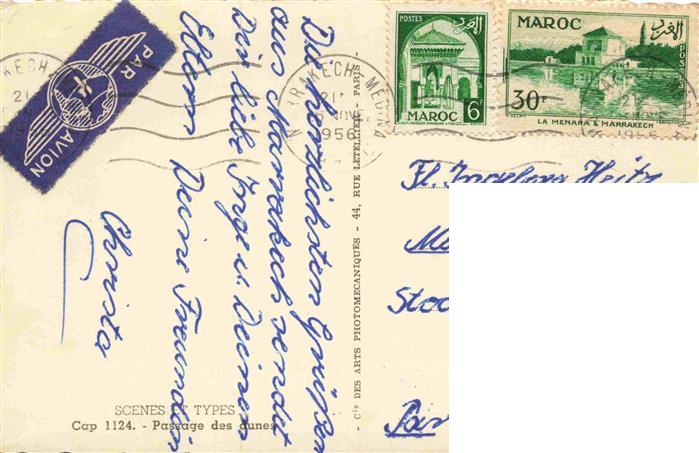 PAR AVION
MARRAKECH MEDINA
1956
POSTES
6F
MAROC
MAROC
المغرب
POSTES
30F
LA MENARA À MARRAKECH
Die herzlichsten Grüße
aus Marrakech sendet
Dir liebe Inge u. Deinen
Eltern Deine Freundin
Christa
Cie DES ARTS PHOTOMECANIQUES - 44, RUE LETELLIER - PARIS -
Fl. Ingeborg Heitz
Stoc
SCENES ET TYPES
Cap 1124. - Passage des dunes